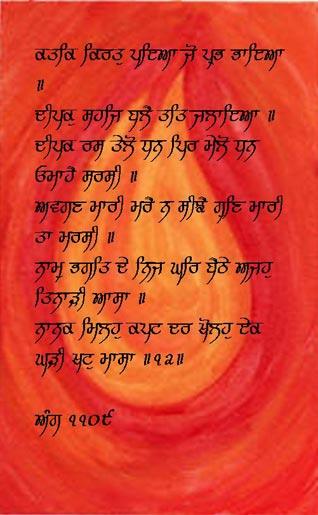 ਕਤਕਿ ਕਿਰਤੁ ਪਇਆ ਜੋ ਪ੍ਰਭ ਭਾਇਆ
॥
ਦੀਪਕੁ ਸਹਜਿ ਬਲੈ ਤਤਿ ਜਲਾਇਆ ॥
ਦੀਪਕ ਰਸ ਤੇਲੋ ਧਨ ਪਿਰ ਮੇਲੋ ਧਨ
ਓਮਾਹੈ ਸਰਸੀ ॥
ਅਵਗਣ ਮਾਰੀ ਮਰੈ ਨ ਸੀਝੈ ਗੁਣਿ ਮਾਰੀ
ਤਾ ਮਰਸੀ ॥
ਨਾਮੁ ਭਗਤਿ ਦੇ ਨਿਜ ਘਰਿ ਬੈਠੇ ਅਜਹੁ
ਤਿਨਾੜੀ ਆਸਾ ॥
ਨਾਨਕ ਮਿਲਹੁ ਕਪਟ ਦਰ ਖੋਲਹੁ ਏਕ
ਘੜੀ ਖਟੁ ਮਾਸਾ ॥੧੨॥
ਅੰਗ ੧੧੦੯